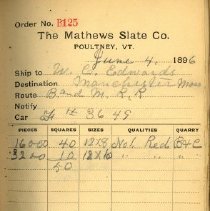 Order No. B125
The Mathews Slate Co.
POULTNEY, VT.
June 4, 1896
Ship to W. E. Edwards
Destination Manchester Mass
Route B and M. R. R
Notify
Car # 3649
PIECES SQUARES SIZES QUALITIES QUARRY
16000 40 12X8 No 1 Red E+C
3200 10 12X10 " " " "
50